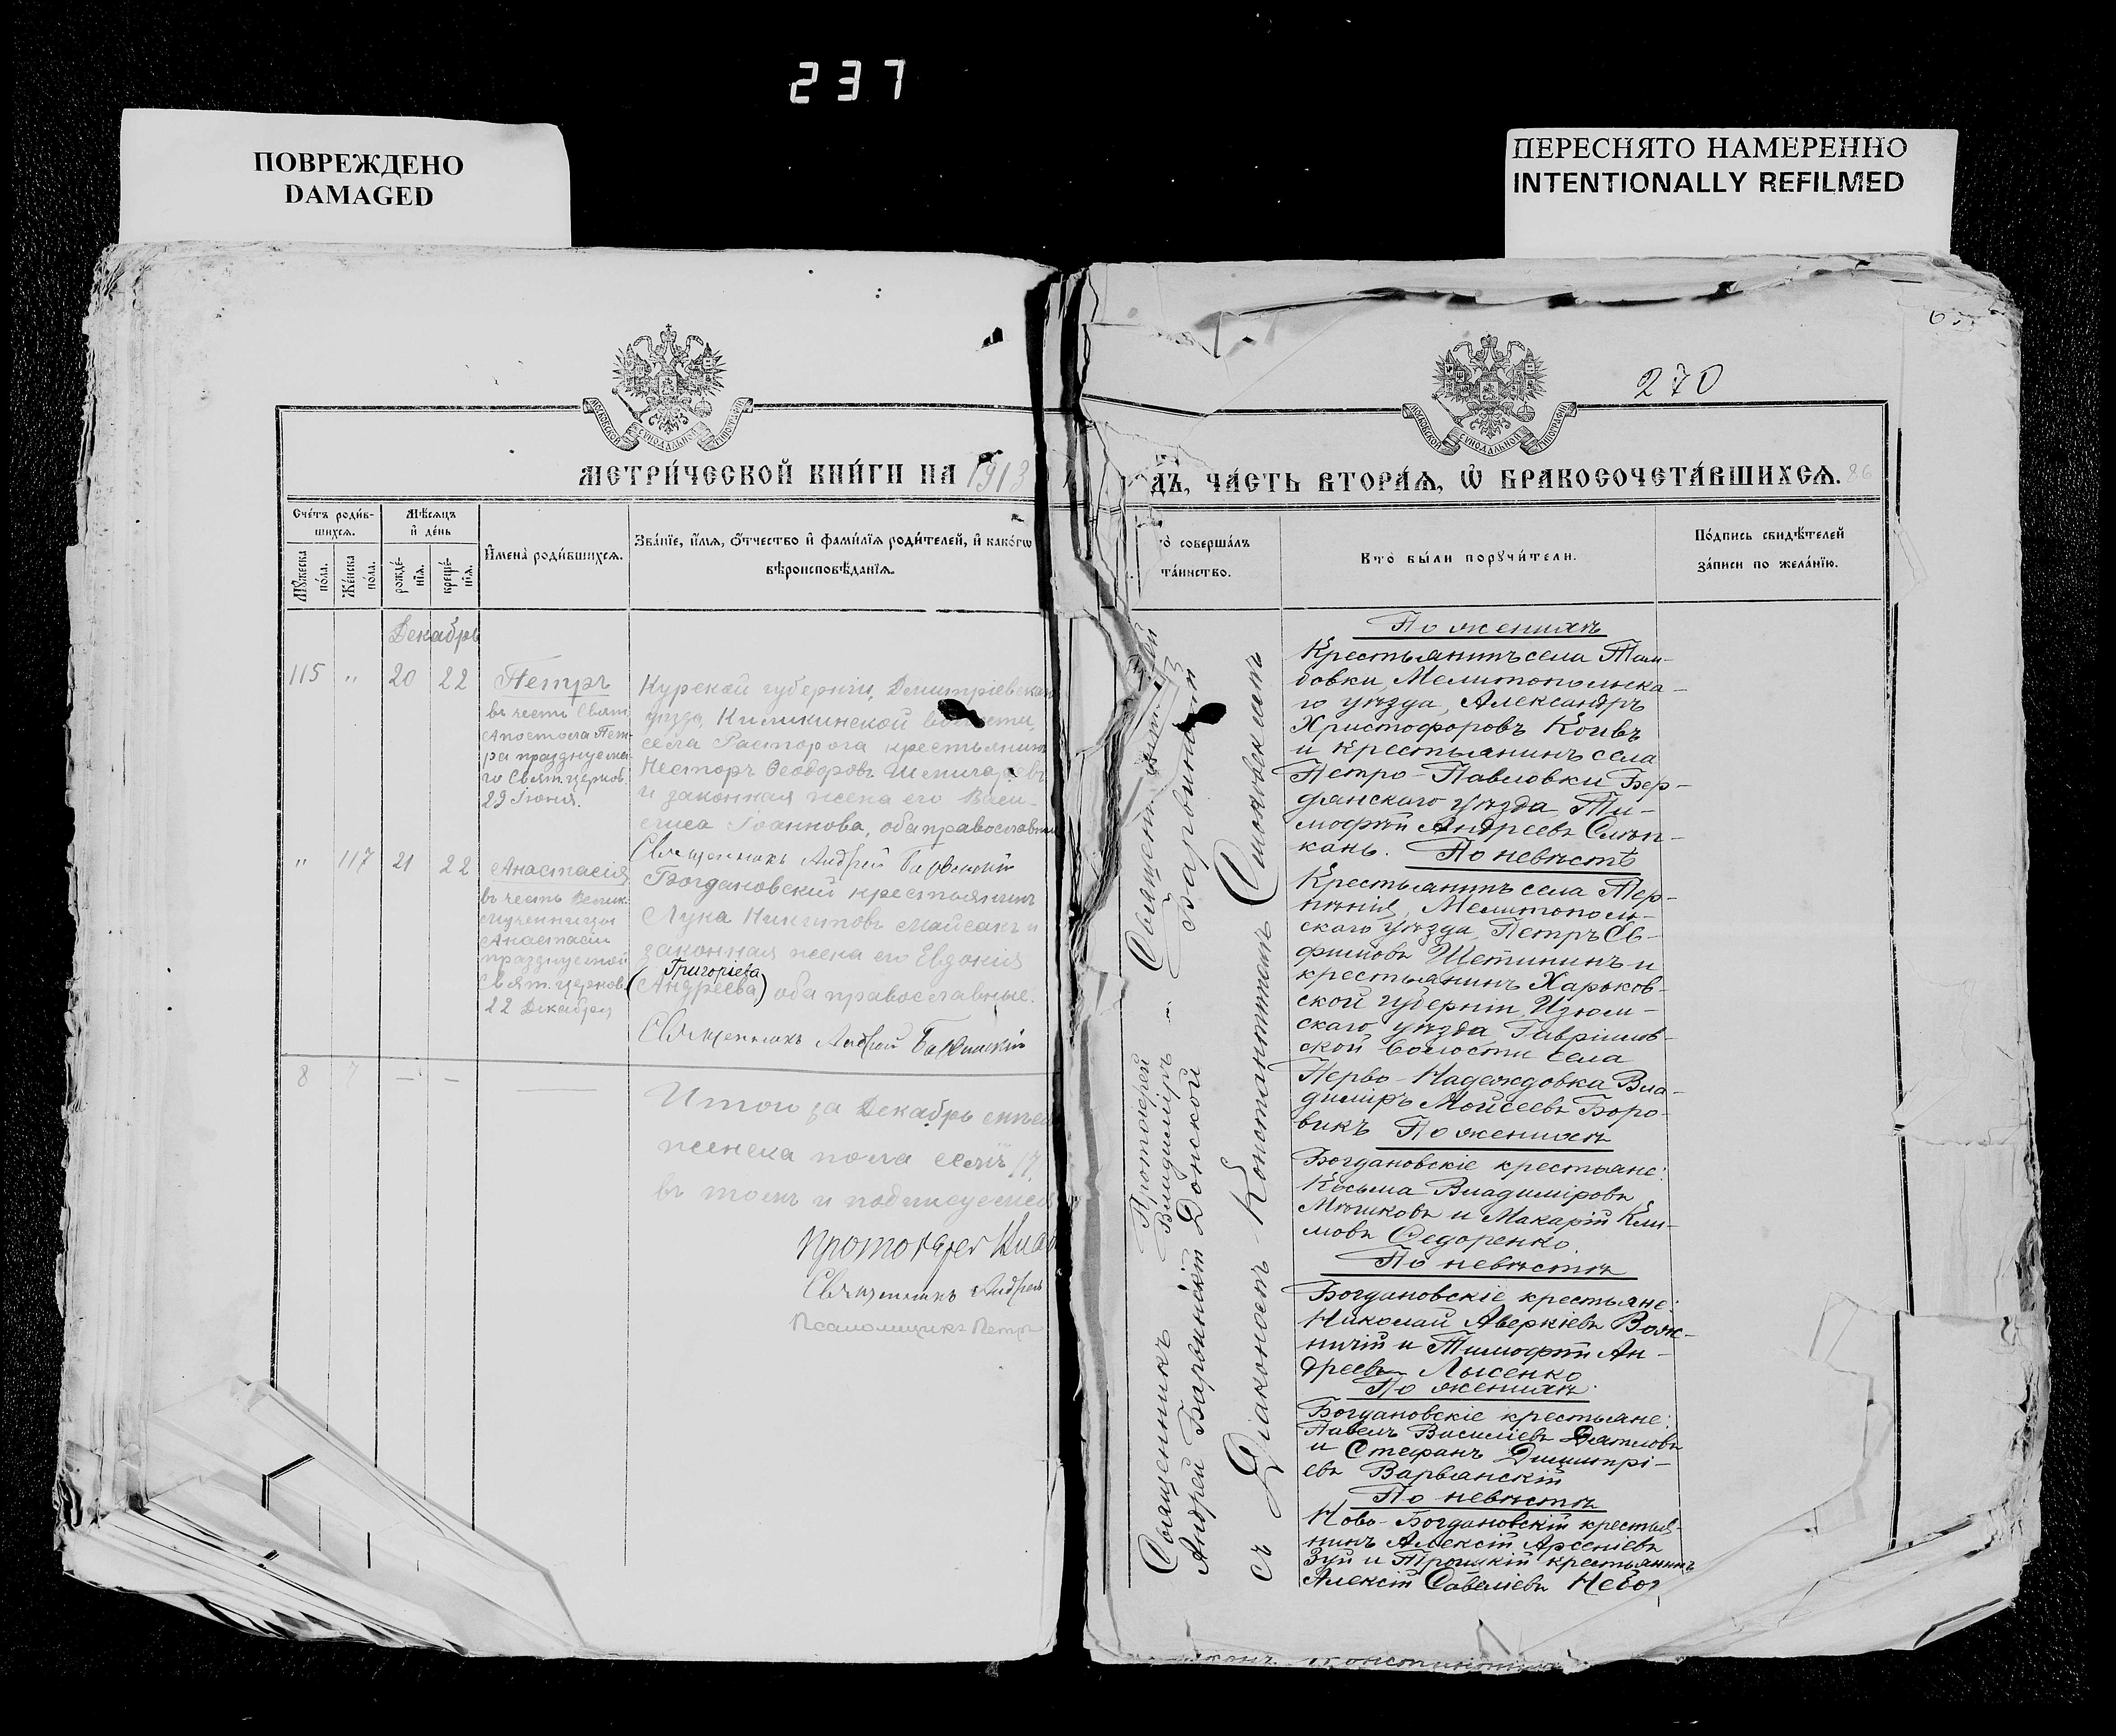 237
ПОВРЕЖДЕНО
DAMAGED
ПЕРЕСНЯТО НАМЕРЕННО
INTENTIONALLY REFILMED
МОСКОВСКОЙ СИНОДАЛЬНОЙ ТИПОГРАФІИ
МЕТРИ́ЧЕСКОЙ КНИ́ГИ НА 1913
Сче́тъ роди́в-
шихся.
Мѣ́сяцъ
и де́нь
Мꙋ́жеска
по́ла.
Же́нска
по́ла.
рожде́-
нїя.
креще́-
нїя.
Имена̀ роди́вшихся.
Зва́нїе, и́мя, ѻ́тчество и фами́лїя роди́телей, и како́гѡ
вѣроисповѣ́данїя.
Декабрь
115 " 20 22
Петръ
въ честь Свят.
Апостола Пет-
ра празднуема-
го Свят. церков.
29 Іюня.
Курской губерніи, Димитріевскаго
уѣзда, Киликинской волости,
села Расторога крестьянинъ
Несторъ Ѳеодоровъ
и законная жена его Васи-
лиса Іоаннова, оба православные
Священникъ Андрей Барвинскій
" 117 21 22
Анастасія
въ честь Велик.
мученницы
Анастасіи
празднуемой
Свят. церков.
22 Декабря
Богдановскій крестьянинъ
Лука Никитовъ Майсакъ и
законная жена его Евдокія
Григоріева
(Андреева) оба православные.
Священникъ Андрей Барвинскій
8 7 — — —
Итого за Декабрь
женска пола семь 7.
въ томъ и подписуемся
Протоіерей
Священникъ Андрей
Псаломщикъ Петръ
МОСКОВСКОЙ СИНОДАЛЬНОЙ ТИПОГРАФІИ
270
ДЪ, ЧА́СТЬ ВТОРА́Я, Ѡ БРАКОСОЧЕТА́ВШИХСЯ. 86
то̀ соверша́лъ
та́инство.
Кто̀ бы́ли порꙋчи́тели.
По́дпись свидѣ́телей
за́писи по жела́нїю.
Священникъ
Барвинскій
Протоіерей
Владиміръ
Донской
Священникъ
Андрей Барвинскій
съ Діакономъ Константиномъ Стоковскимъ
По женихѣ
Крестьянинъ села Там-
бовки, Мелитопольска-
го уѣзда, Александръ
Христофоровъ Коивъ
и крестьянинъ села
Петро-Павловки Бер-
дянскаго уѣзда Ти-
моѳей Андреевъ Слѣп-
канъ. По невѣстѣ
Крестьянинъ села Тер-
пѣнія, Мелитополь-
скаго уѣзда, Петръ Ев-
фимовъ Щетининъ и
крестьянинъ Харьков-
ской губерніи, Изюм-
скаго уѣзда Гавриловской
ской волости села
Перво-Надеждовка Вла-
диміръ Мойсеевъ Боро-
викъ По женихѣ
Богдановскіе крестьяне:
Косьма Владиміровъ
Мѣшковъ и Макарій Кли-
мовъ Федоренко.
По невѣстѣ
Богдановскіе крестьяне:
Николай Аверкіевъ Вож-
ничій и Тимоѳей Ан-
дреевъ Лысенко
По женихѣ:
Богдановскіе крестьяне:
Павелъ Василіевъ Дятловъ
и Стефанъ Димитрі-
евъ Варванскій
По невѣстѣ
Ново-Богдановскій крестья-
нинъ Алексій Арсеніевъ
Зуй и Троицкій крестьянинъ
Алексій Савеліевъ Небог